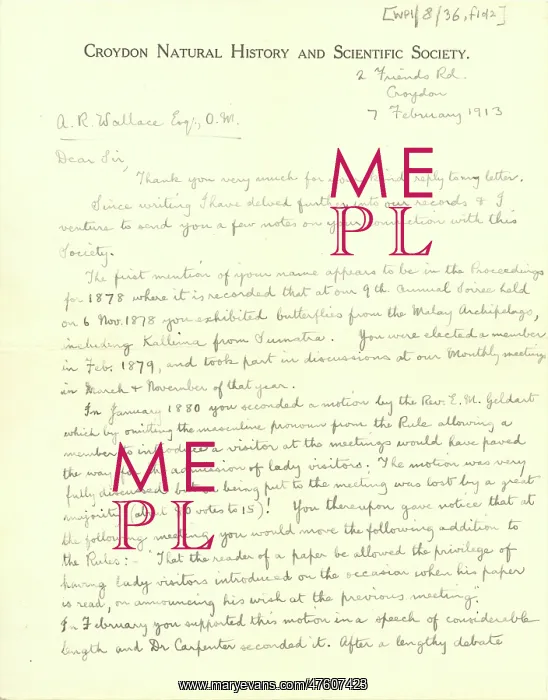 [WP1/8/36, f1of2]
CROYDON NATURAL HISTORY AND SCIENTIFIC SOCIETY.
2 Friends Rd.
Croydon
7 February 1913
A. R. Wallace Esq., O.M.
Dear Sir,
Thank you very much for your kind reply to my letter.
Since writing I have delved further into our records & I
venture to send you a few notes on your connection with this
Society.
The first mention of your name appears to be in the Proceedings
for 1878 where it is recorded that at our 9th annual Soiree held
on 6 Nov. 1878 you exhibited butterflies from the Malay Archipelago,
including Kallima from Sumatra. You were elected a member
in Feb. 1879, and took part in discussions at our Monthly meetings
in March & November of that year.
In January 1880 you seconded a motion by the Rev. E. M. Geldart
which by omitting the masculine pronoun from the Rule allowing a
member to introduce a visitor at the meetings would have paved
the way for the admission of lady visitors. The motion was very
fully discussed but on being put to the meeting was lost by a great
majority (about 80 votes to 15)! You thereupon gave notice that at
the following meeting you would move the following addition to
the Rules:- "That the reader of a paper be allowed the privilege of
having lady visitors introduced on the occasion when his paper
is read, on announcing his wish at the previous meeting."
In February you supported this motion in a speech of considerable
length and Dr Carpenter seconded it. After a lengthy debate
ME
PL
ME
PL
www.maryevans.com/47607423